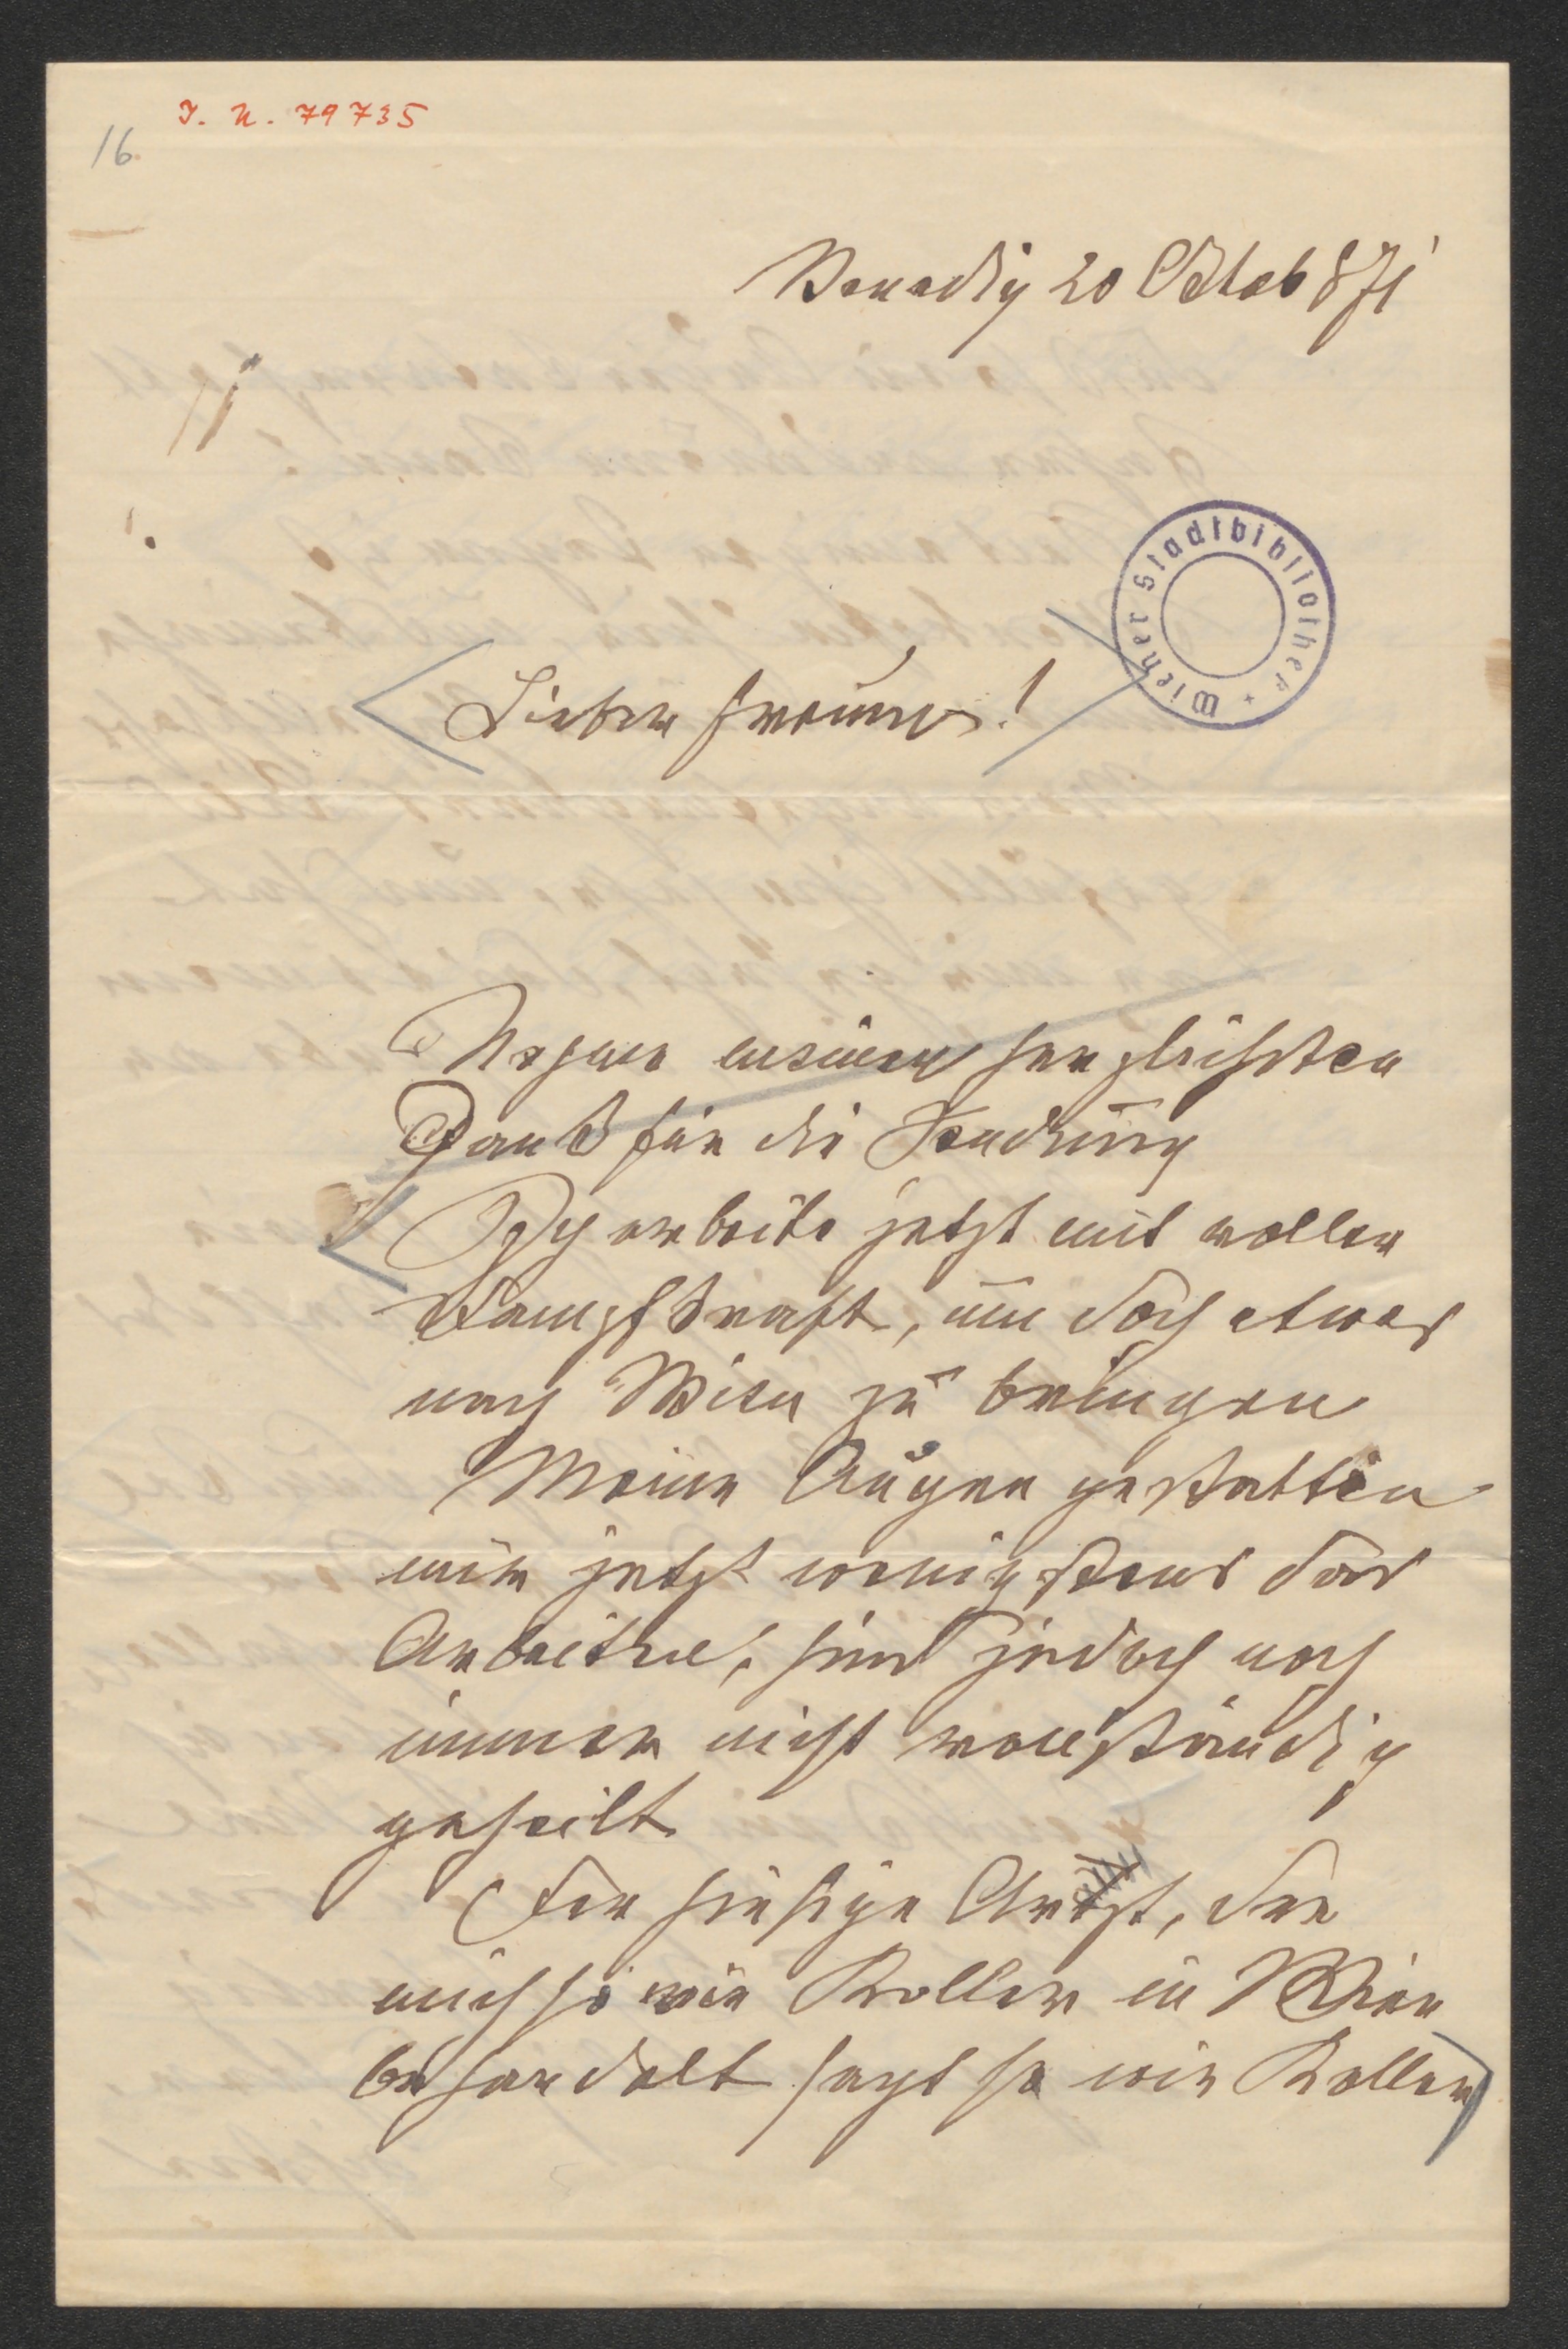 I. N. 79735
16
Venedig 20 Oktob 871
Wiener Stadtbibliothek
Lieber Freund!
Nehme meinen herzlichsten
Dank für die Sendung
Ich arbeite jetzt mit voller
Dampfkraft, um doch etwas
nach Wien zu bringen
Meine Augen gestatten
mir jetzt wenigstens das
Arbeiten, sind jedoch noch
immer nicht vollständig
geheilt
Der hiesige Arzt, der
mich so wie Roller in Wien
behandelt sagt so wie Roller